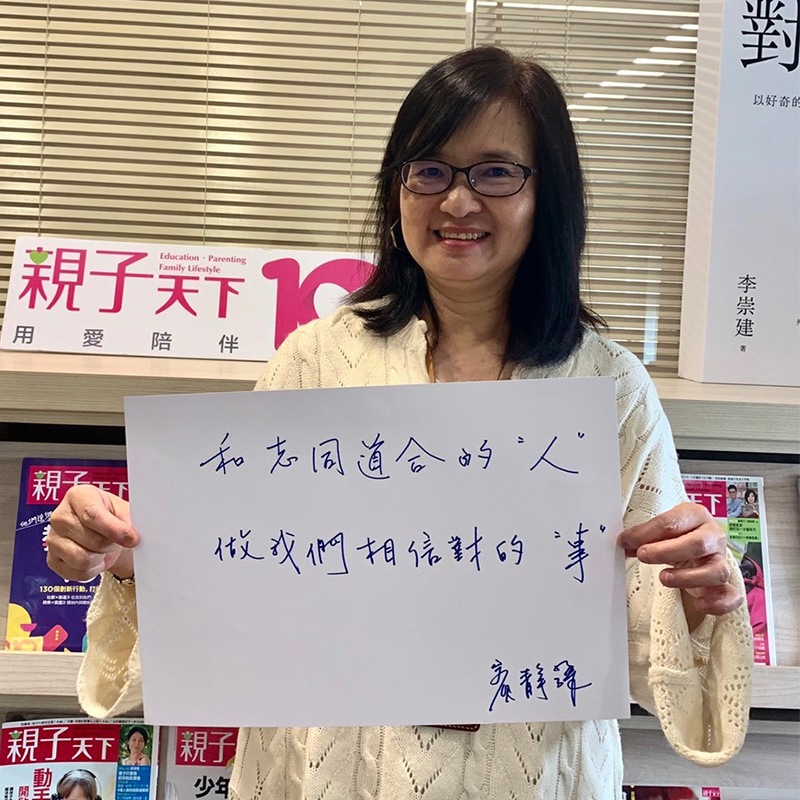 對
以好奇的
李崇建
著
親子天下
Education · Parenting
Family Lifestyle
10
用愛陪伴
和志同道合的"人"
做我們相信對的"事"
親子天下
130個創新行動,打
親子天下
親子天下
動手
開
親子
少年